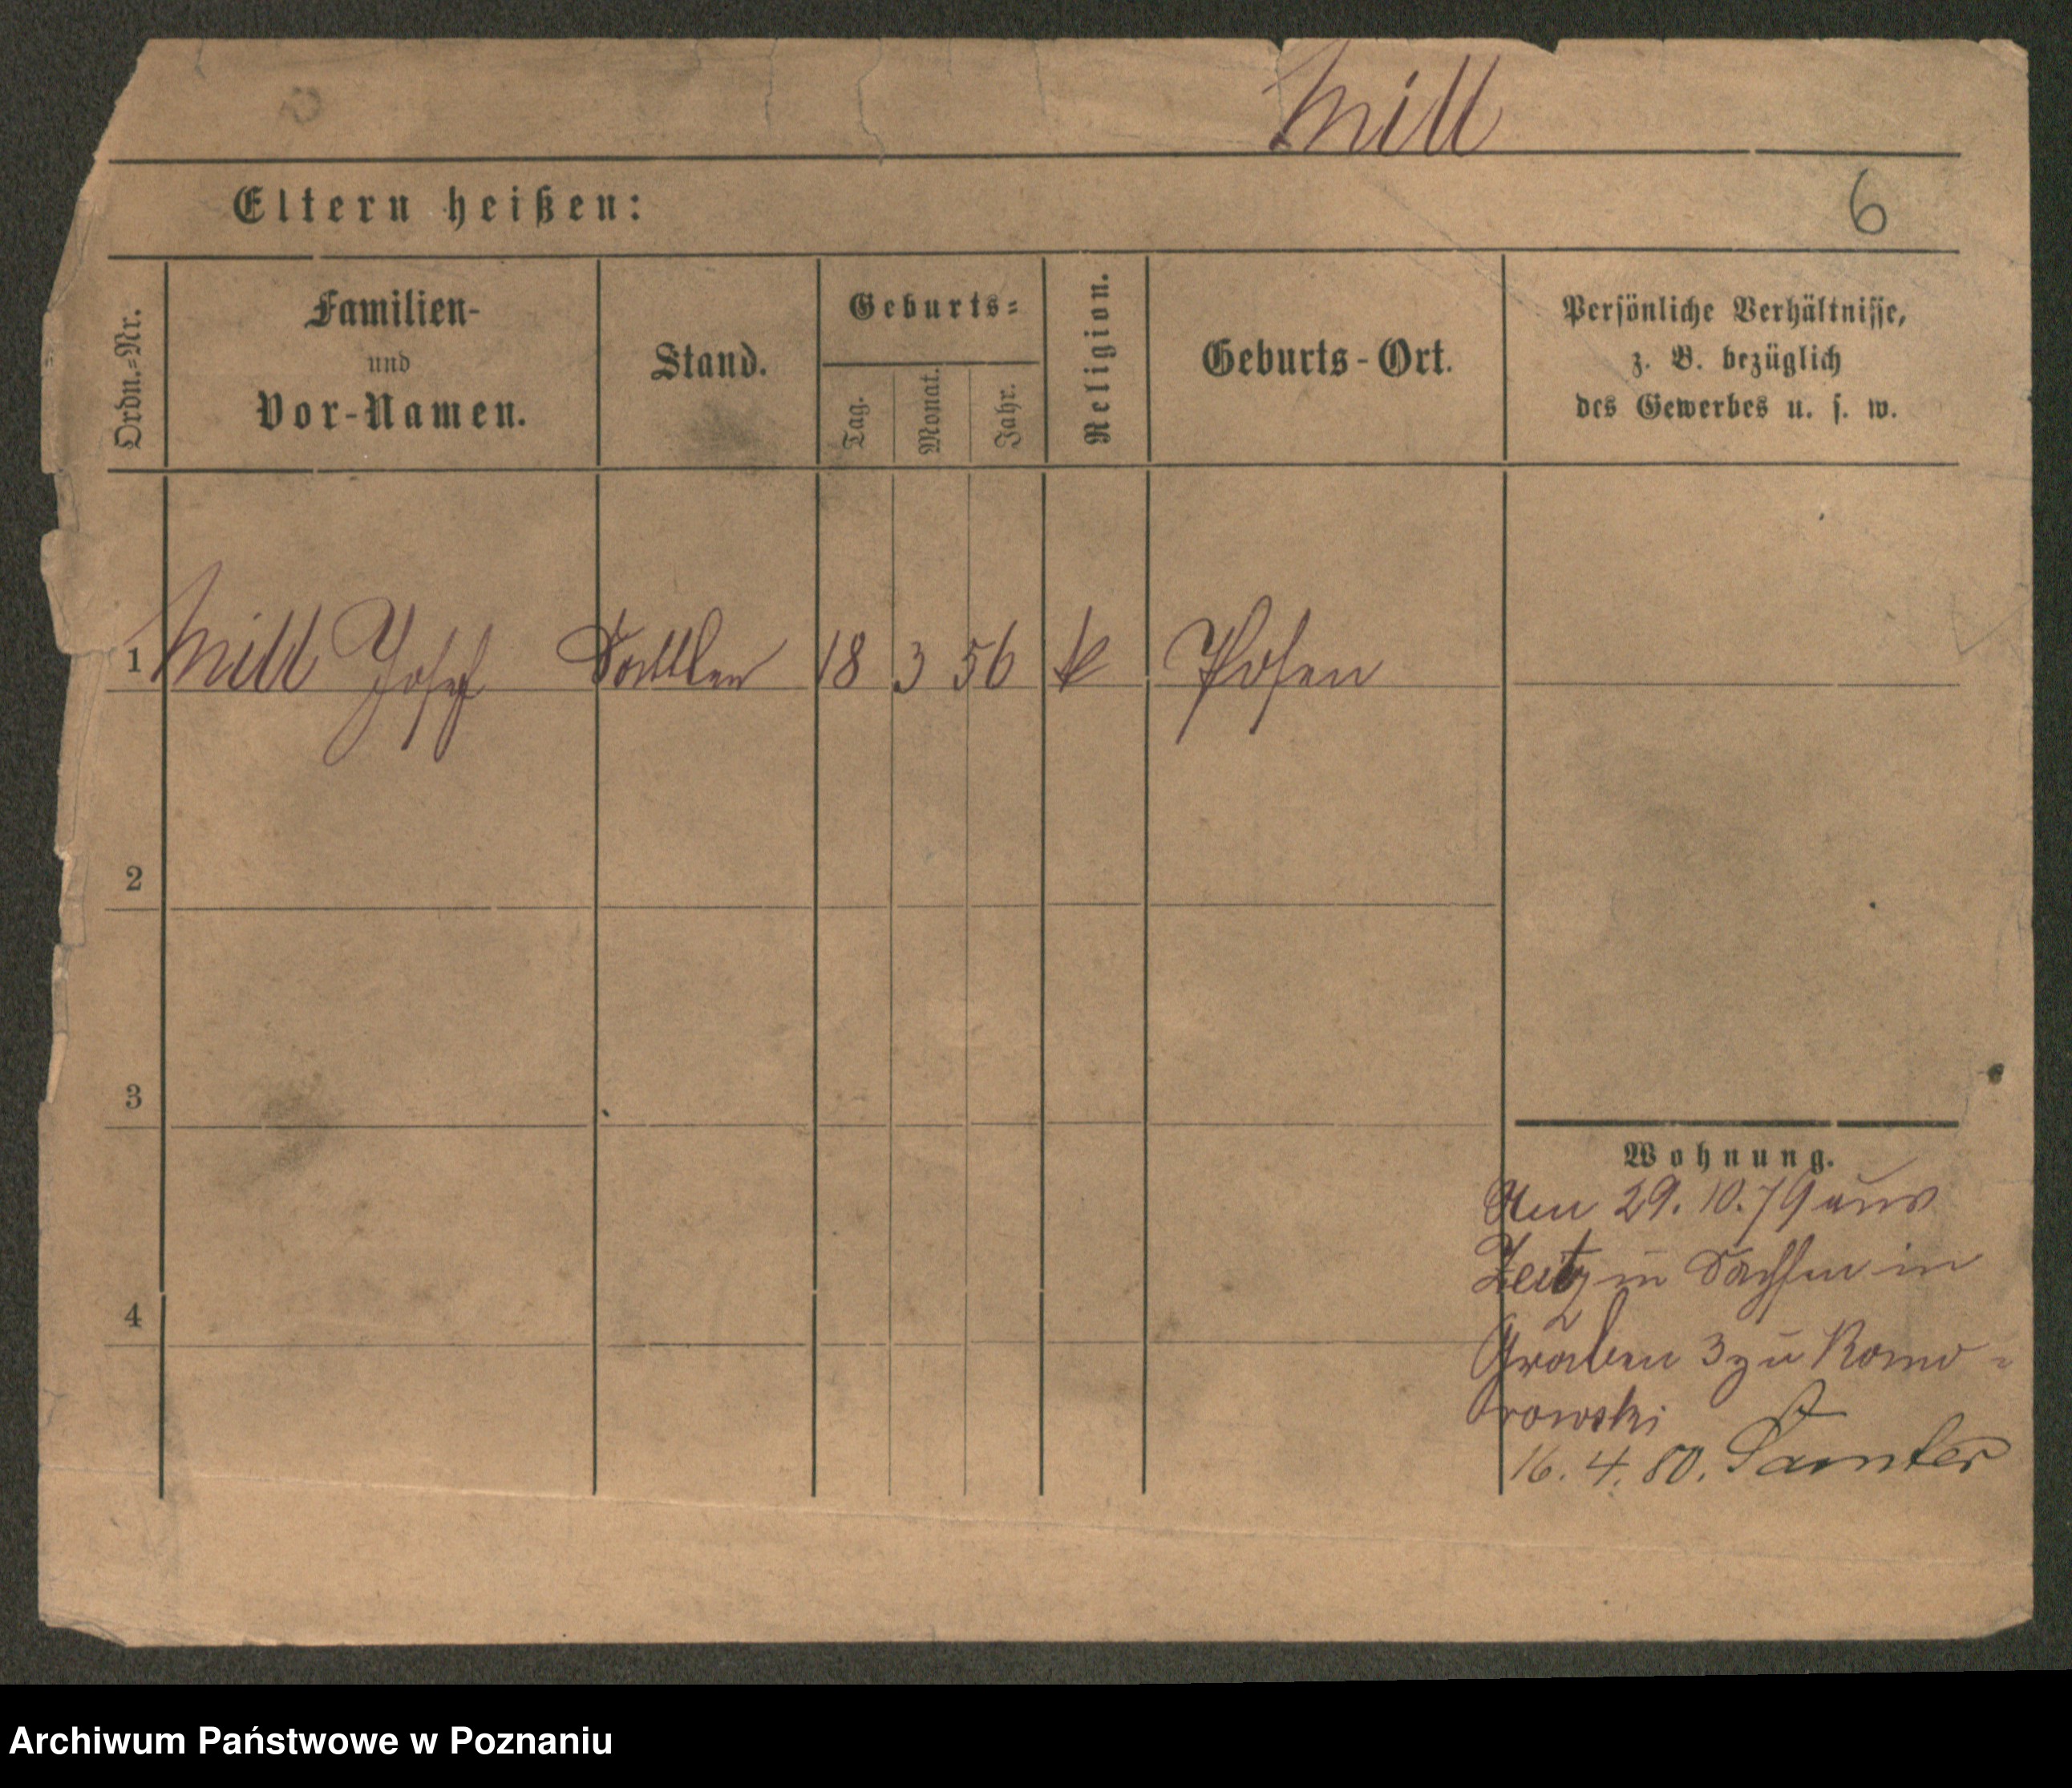 Mill
Eltern heißen:
6
Ordn.-Nr.
Familien-
und
Vor-Namen.
Stand.
Geburts-
Tag.
Monat.
Jahr.
Religion.
Geburts-Ort.
Persönliche Verhältnisse,
z. B. bezüglich
des Gewerbes u. s. w.
1 Mill Josef Sattler 18 3 56 k Posen
2
3
4
Wohnung.
Am 29. 10. 79 aus
Zeitz in Sachsen in
Graben 3 zu Komo-
rowski
16. 4. 80. Samter
Archiwum Państwowe w Poznaniu